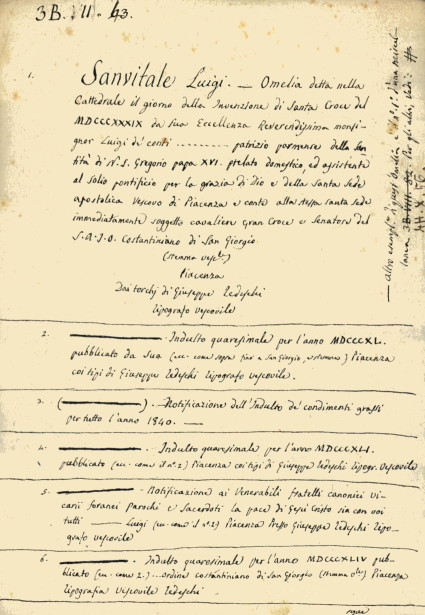 3B. II. 43.
1.
Sanvitale Luigi. — Omelia detta nella
Cattedrale il giorno della Invenzione di Santa Croce del
MDCCCXXXIX da Sua Eccellenza Reverendissima monsi-
gnor Luigi de' conti ........... patrizio parmense della San
tità di N. S. Gregorio papa XVI. prelato domestico, ed assistente
al Solio pontificio per la grazia di Dio e della Santa Sede
apostolica Vescovo di Piacenza e conte alla stessa santa sede
immediatamente soggetto cavaliere Gran Croce e Senatore del
S. A. I. O. Costantiniano di San Giorgio
(stemma vesc.)
Piacenza
Dai torchj di Giuseppe Tedeschi
tipografo Vescovile
2. Indulto quaresimale per l'anno MDCCCXL.
pubblicato da Sua (ec. come sopra fino a San Giorgio, e stemma) Piacenza
coi tipi di Giuseppe Tedeschi tipografo vescovile.
3. ( ) .. Notificazione dell'Indulto de' condimenti grassi
per tutto l'anno 1840. —
4. Indulto quaresimale per l'anno MDCCCXLI.
pubblicato (ec. come il nº 2) Piacenza coi tipi di Giuseppe Tedeschi tipogr. Vescovile
5. Notificazione ai Venerabili fratelli canonici vi-
carii foranei parochi e Sacerdoti la pace di Gesù Cristo sia con voi
tutti — Luigi (ec. come il nº 2) Piacenza Presso Giuseppe Tedeschi tipo-
grafo vescovile
6. Indulto quaresimale per l'anno MDCCCXLIV pub-
blicato (ec. come 2.)... ordine costantiniano di San Giorgio (stemma) Piacenza
tipografia Vescovile Tedeschi
segue
— Altro esempl.
Per gli altri, vedi:
HH. X. 56.